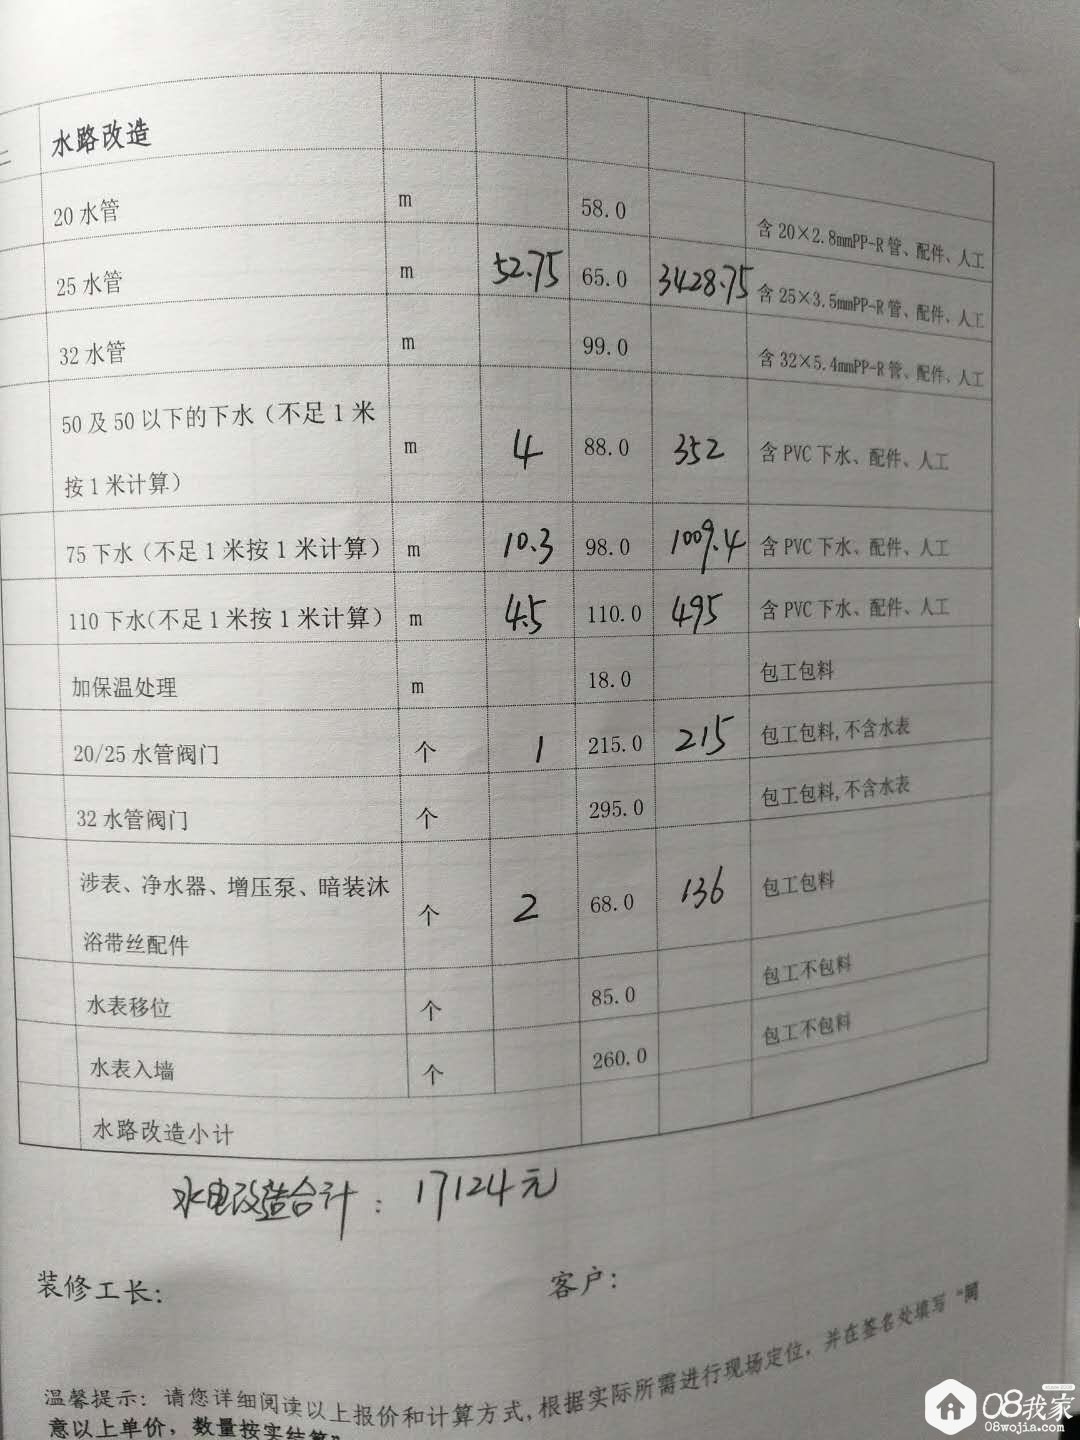 二 水路改造
20 水管 m 58.0 含 20×2.8mmPP-R 管、配件、人工
25 水管 m 52.75 65.0 3428.75 含 25×3.5mmPP-R 管、配件、人工
32 水管 m 99.0 含 32×5.4mmPP-R 管、配件、人工
50 及 50 以下的下水（不足 1 米
按 1 米计算） m 4 88.0 352 含 PVC 下水、配件、人工
75 下水（不足 1 米按 1 米计算） m 10.3 98.0 1009.4 含 PVC 下水、配件、人工
110 下水(不足 1 米按 1 米计算） m 4.5 110.0 495 含 PVC 下水、配件、人工
加保温处理 m 18.0 包工包料
20/25 水管阀门 个 1 215.0 215 包工包料,不含水表
32 水管阀门 个 295.0 包工包料,不含水表
涉表、净水器、增压泵、暗装沐
浴带丝配件 个 2 68.0 136 包工包料
水表移位 个 85.0 包工不包料
水表入墙 个 260.0 包工不包料
水路改造小计
水电改造合计：17124元
装修工长： 客户：
温馨提示：请您详细阅读以上报价和计算方式,根据实际所需进行现场定位，并在签名处填写“同
意以上单价，数量按实结算”
08我家
08wojia.com